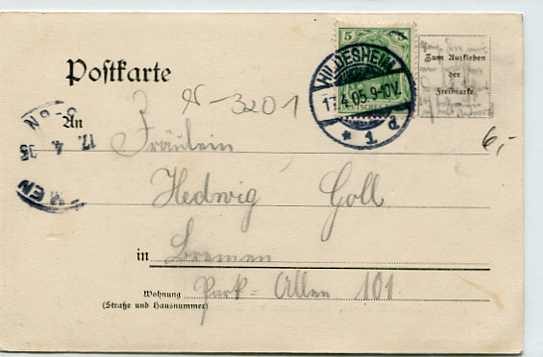 5
HILDESHEIM
17.4.05.9-10V.
* 1 d
Zum Aufkleben
der
Freimarke.
Postkarte
N-3201
6,-
An
Fräulein
Hedwig Goll
in Bremen
Wohnung
(Straße und Hausnummer)
Park-Allee 101
17. 4. 05
MEN